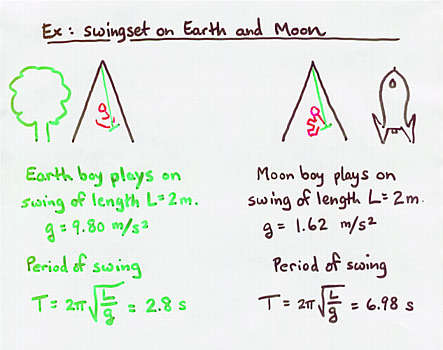 Ex: Swingset on Earth and Moon
Earth boy plays on
swing of length L=2m.
g = 9.80 m/s²
Period of swing
T = 2π√(L/g) = 2.8 s
Moon boy plays on
swing of length L=2m.
g = 1.62 m/s²
Period of swing
T = 2π√(L/g) = 6.98 s